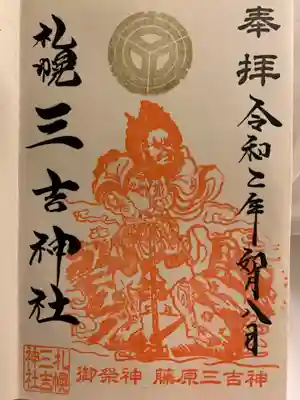 奉拝
令和二年 八日
札幌 三吉神社
御祭神 藤原三吉神
札幌
三吉
神社